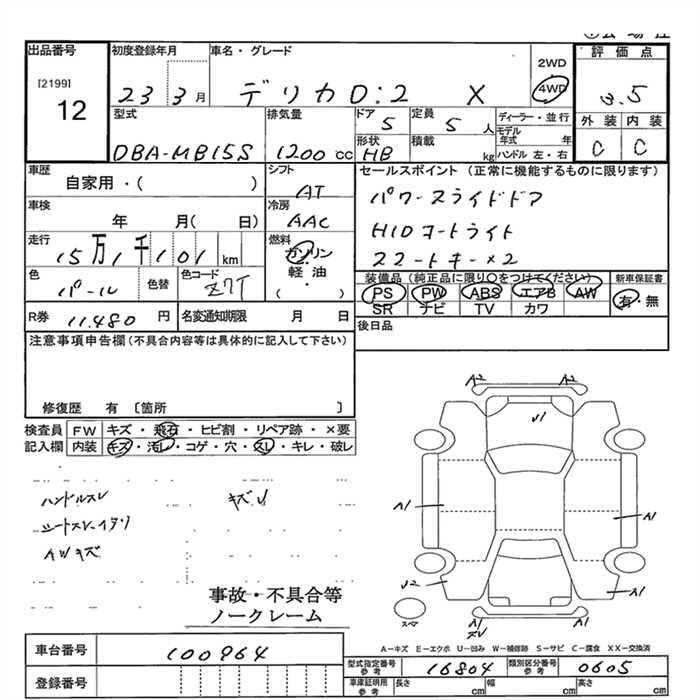 出品番号 初度登録年月 車名・グレード 2WD 評価点
[2199] 12 23 3月 デリカD:2 X 4WD 3.5
型式 排気量 ドア 定員 ディーラー・並行 外装 内装
DBA-MB15S 1200 cc 5 5人 モデル年式 年 C C
形状 積載 HB kg ハンドル 左・右
車歴 シフト セールスポイント (正常に機能するものに限ります)
自家用・( ) AT パワースライドドア
車検 冷房 HIDオートライト
年 月( 日) AAC スマートキー×2
走行 燃料
15万1千101 km ガソリン
色 色替 色コード 軽油
パール Z7T ( ・ )
装備品 (純正品に限り○をつけてください) 新車保証書
PS PW ABS エアB AW 有・無
SR ナビ TV カワ
R券 11,480 円 名変通知期限 月 日 後日品
注意事項申告欄(不具合内容等は具体的に記入して下さい)
修復歴 有 〔箇所 〕
検査員 FW キズ・飛石・ヒビ割・リペア跡・×要
記入欄 内装 キズ・汚レ・コゲ・穴・スレ・キレ・破レ
ハンドルスレ キズU
シートスレ・
AWキズ
A2 A2
U1
A1 A1
U2 A1
A1
事故・不具合等
ノークレーム
A−キズ E−エクボ U−凹み W−補修跡 S−サビ C−腐食 XX−交換済
車台番号 100964
型式指定番号 参考 16804 類別区分番号 参考 0605
登録番号 車庫証明用 参考 長さ cm 幅 cm 高さ cm